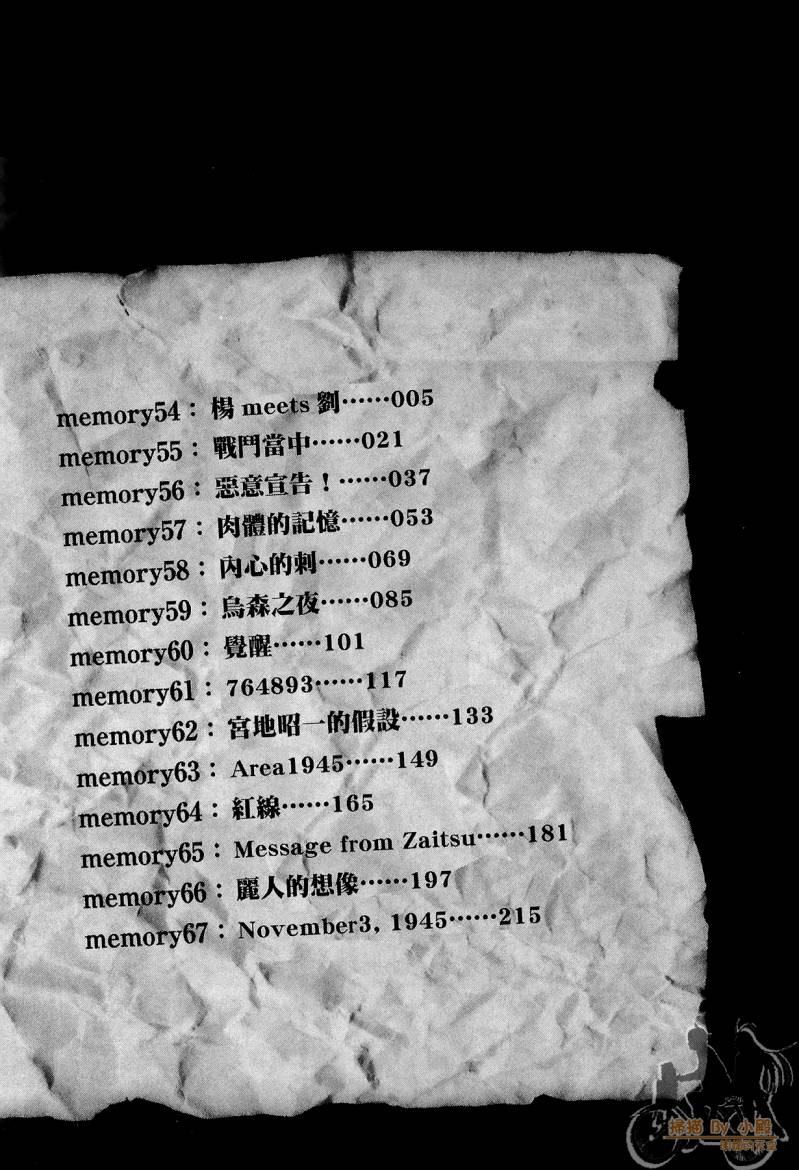 memory54：楊 meets 劉……005
memory55：戰鬥當中……021
memory56：惡意宣告！……037
memory57：肉體的記憶……053
memory58：內心的刺……069
memory59：烏森之夜……085
memory60：覺醒……101
memory61：764893……117
memory62：宮地昭一的假設……133
memory63：Area1945……149
memory64：紅線……165
memory65：Message from Zaitsu……181
memory66：麗人的想像……197
memory67：November3, 1945……215
掃描 By 小殿